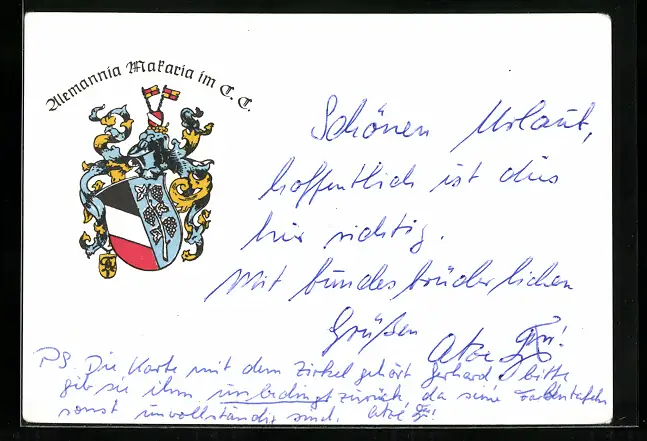 Alemannia Makaria im C. C.
Schönen Urlaub,
hoffentlich ist dies
hier richtig.
Mit bundesbrüderlichen
Grüßen Atze
PS Die Karte mit dem Zirkel gehört Gerhard, bitte
gib sie ihm unbedingt zurück, da seine Farbentafeln
sonst unvollständig sind. Atze